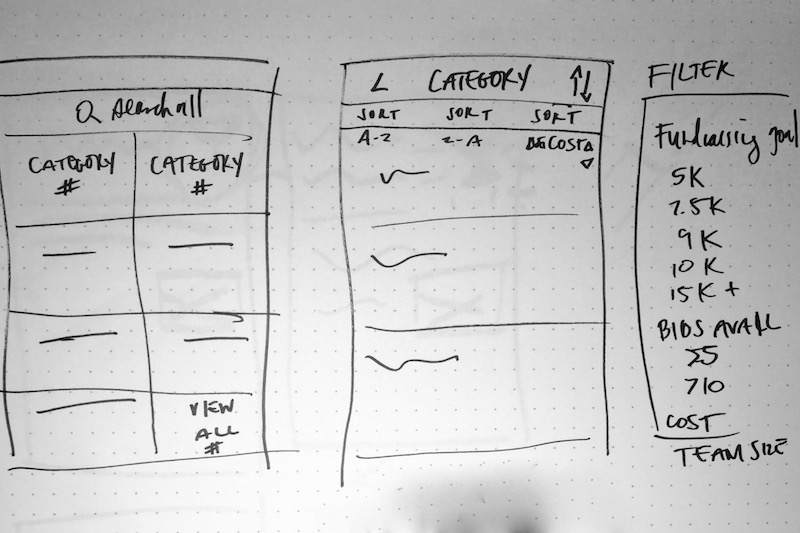 Search all
CATEGORY
#
CATEGORY
#
VIEW
ALL
#
CATEGORY
SORT SORT SORT
A-Z Z-A COST
FILTER
Fundraising goal
5K
7.5K
9K
10K
15K +
BIDS AVAIL
COST
TEAM SIZE